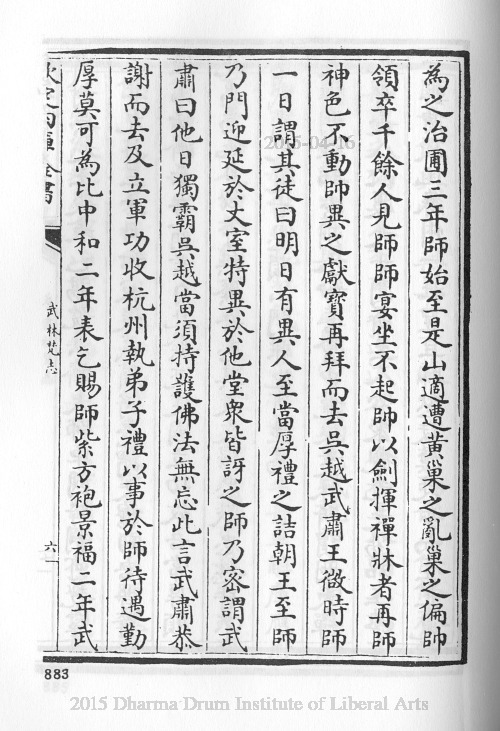 為之治圃三年師始至是山適遭黃巢之亂巢之偏帥
領卒千餘人見師師宴坐不起帥以劍揮禪牀者再師
神色不動帥異之獻寶再拜而去吳越武肅王微時師
一日謂其徒曰明日有異人至當厚禮之詰朝王至師
乃門迎延於丈室特異於他堂衆皆訝之師乃密謂武
肅曰他日獨霸吳越當須持護佛法無忘此言武肅恭
謝而去及立軍功收杭州執弟子禮以事於師待遇勤
厚莫可為比中和二年表乞賜師紫方袍景福二年武
欽定四庫全書
武林梵志
六
883
2015-04-16
2015 Dharma Drum Institute of Liberal Arts